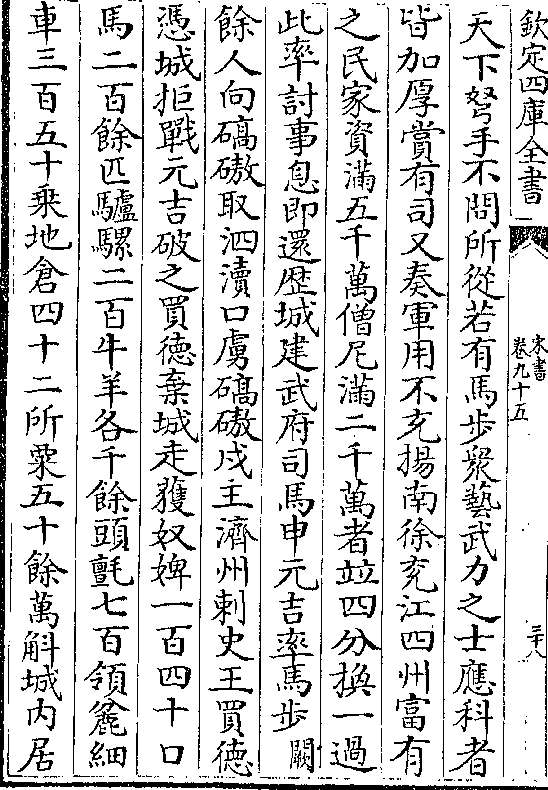 欽定四庫全書
宋書
卷九十五
三十八
天下弩手不問所從若有馬步衆藝武力之士應科者
皆加厚賞有司又奏軍用不充揚南徐兖江四州富有
之民家資滿五千萬僧尼滿二千萬者竝四分換一過
此率討事息即還歴城建武府司馬申元吉率馬步闕
餘人向碻磝取泗瀆口虜碻磝戍主濟州刺史王買德
憑城拒戰元吉破之買德棄城走獲奴婢一百四十口
馬二百餘匹驢騾二百牛羊各千餘頭氊七百領麄細
車三百五十乗地倉四十二所粟五十餘萬斛城内居